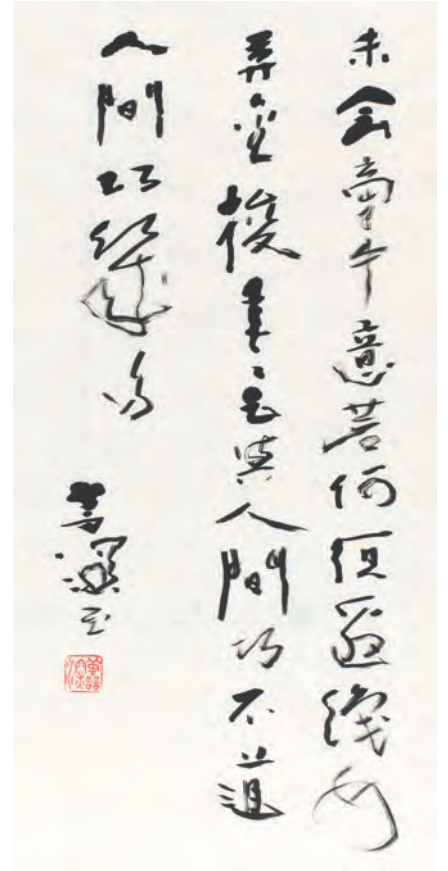 未會牽牛意若何邀織女
弄金梭年々乞與人間巧不道
人間巧幾多